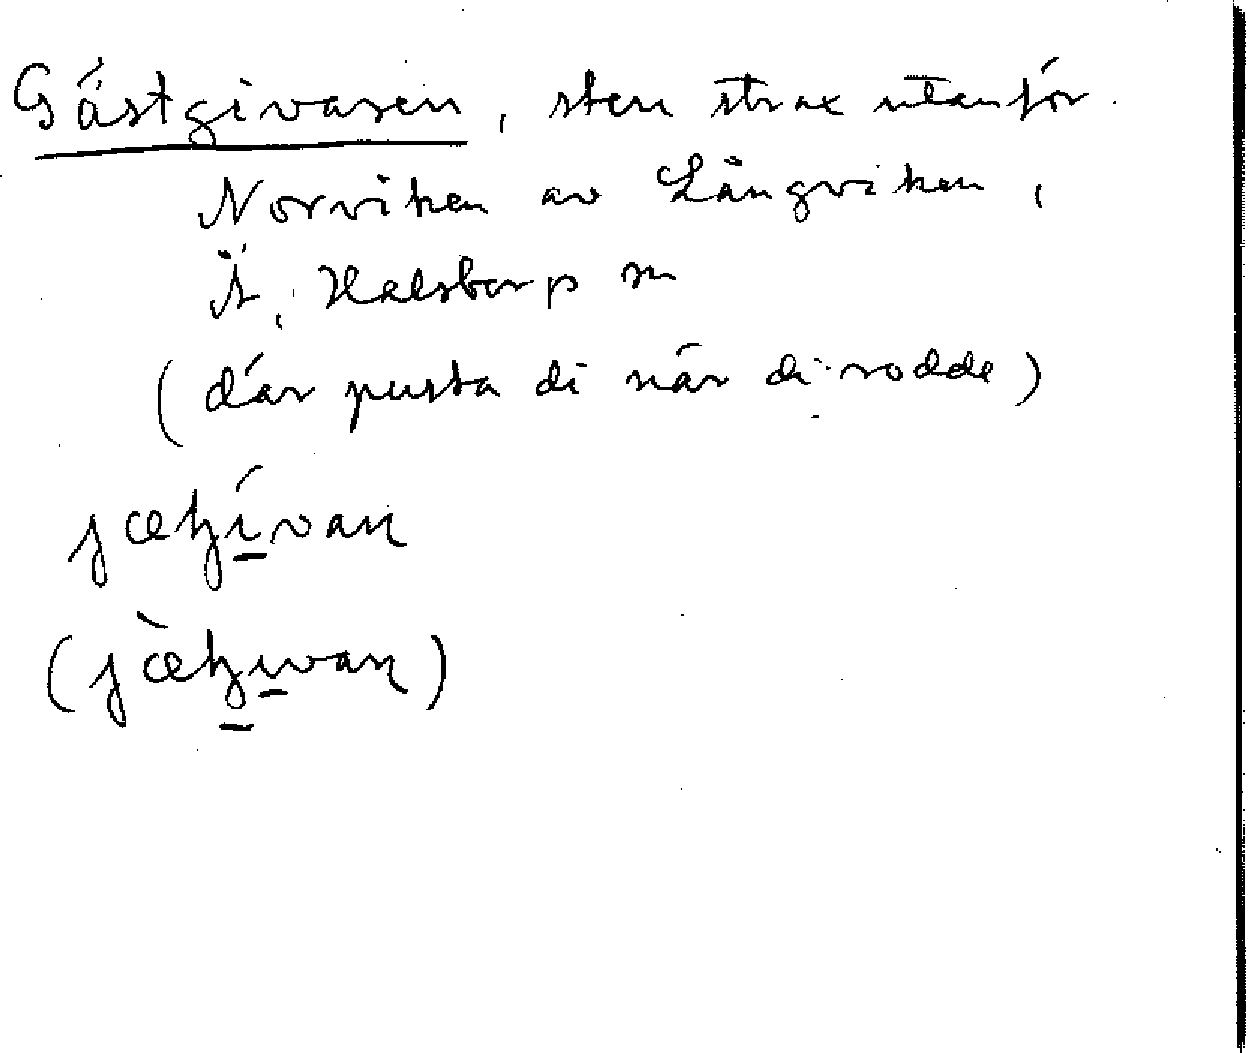 Gästgivaren, sten strax utanför
Norviken av Långviken,
Ä, Halsborp sn
(där pusta di när di rodde)